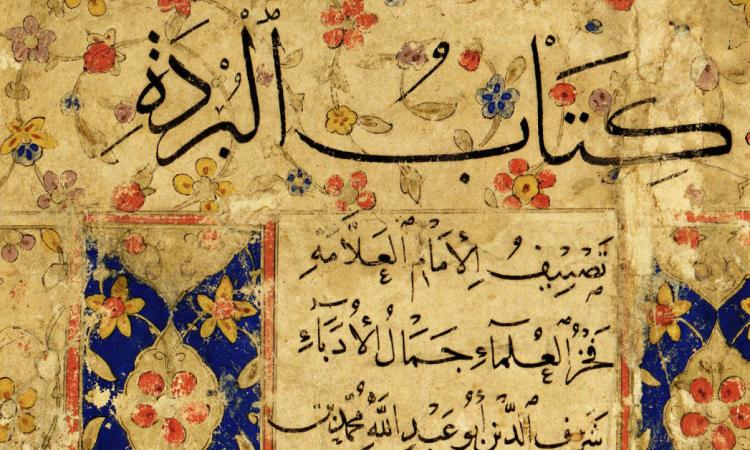 كِتَابُ الْبُرْدَةِ
تَصْنِيفُ الْإِمَامِ الْعَلَّامَةِ
فَخْرُ الْعُلَمَاءِ جَمَالُ الْأُدَبَاءِ
شَرَفِ الدِّينِ أَبُو عَبْدِ اللَّهِ مُحَمَّد بن